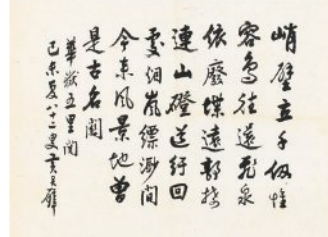 峭壁立千仞惟
容鳥往還飛泉
依廢堞遠接
連山磴道紆回
處烟嵐縹渺間
今来風景地曾
是古名關
華嶽五里關
己未夏八十二叟黃君璧